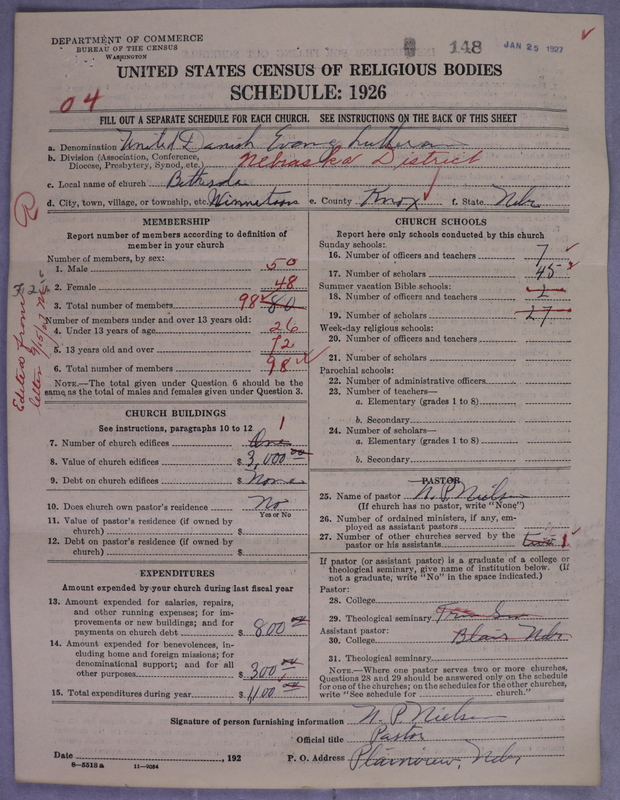 DEPARTMENT OF COMMERCE
BUREAU OF THE CENSUS
WASHINGTON
148
JAN 25 1927
UNITED STATES CENSUS OF RELIGIOUS BODIES
SCHEDULE: 1926
04
FILL OUT A SEPARATE SCHEDULE FOR EACH CHURCH. SEE INSTRUCTIONS ON THE BACK OF THIS SHEET
a. Denomination United Danish Evang Lutheran
b. Division (Association, Conference, Diocese, Presbytery, Synod, etc.) Nebraska District
c. Local name of church Bethesda
d. City, town, village, or township, etc. Winnetoon e. County Knox f. State Nebr
R
Edited from letter
MEMBERSHIP
Report number of members according to definition of
member in your church
Number of members, by sex:
1. Male 50
2. Female 48
3. Total number of members 98 80
Number of members under and over 13 years old:
4. Under 13 years of age 26
5. 13 years old and over 72
6. Total number of members 98
NOTE.—The total given under Question 6 should be the
same as the total of males and females given under Question 3.
CHURCH BUILDINGS
See instructions, paragraphs 10 to 12
7. Number of church edifices One 1
8. Value of church edifices $ 3,000 00
9. Debt on church edifices $ None
10. Does church own pastor's residence No
Yes or No
11. Value of pastor's residence (if owned by
church) $
12. Debt on pastor's residence (if owned by
church) $
EXPENDITURES
Amount expended by your church during last fiscal year
13. Amount expended for salaries, repairs,
and other running expenses; for im-
provements or new buildings; and for
payments on church debt $ 800 00
14. Amount expended for benevolences, in-
cluding home and foreign missions; for
denominational support; and for all
other purposes $ 300 00
15. Total expenditures during year $ 1100 00
CHURCH SCHOOLS
Report here only schools conducted by this church
Sunday schools:
16. Number of officers and teachers 7
17. Number of scholars 45
Summer vacation Bible schools:
18. Number of officers and teachers 1
19. Number of scholars 27
Week-day religious schools:
20. Number of officers and teachers
21. Number of scholars
Parochial schools:
22. Number of administrative officers
23. Number of teachers—
a. Elementary (grades 1 to 8)
b. Secondary
24. Number of scholars—
a. Elementary (grades 1 to 8)
b. Secondary
PASTOR
25. Name of pastor N. P. Nielsen
(If church has no pastor, write "None")
26. Number of ordained ministers, if any, em-
ployed as assistant pastors
27. Number of other churches served by the
pastor or his assistants two 1
If pastor (or assistant pastor) is a graduate of a college or
theological seminary, give name of institution below. (If
not a graduate, write "No" in the space indicated.)
Pastor:
28. College
29. Theological seminary Trin Sem
Assistant pastor:
30. College Blair Nebr
31. Theological seminary
NOTE.—Where one pastor serves two or more churches,
Questions 28 and 29 should be answered only on the schedule
for one of the churches; on the schedules for the other churches,
write "See schedule for church."
Signature of person furnishing information N. P. Nielsen
Official title Pastor
Date , 192 P. O. Address Plainview, Nebr
8—5518a 11—9034